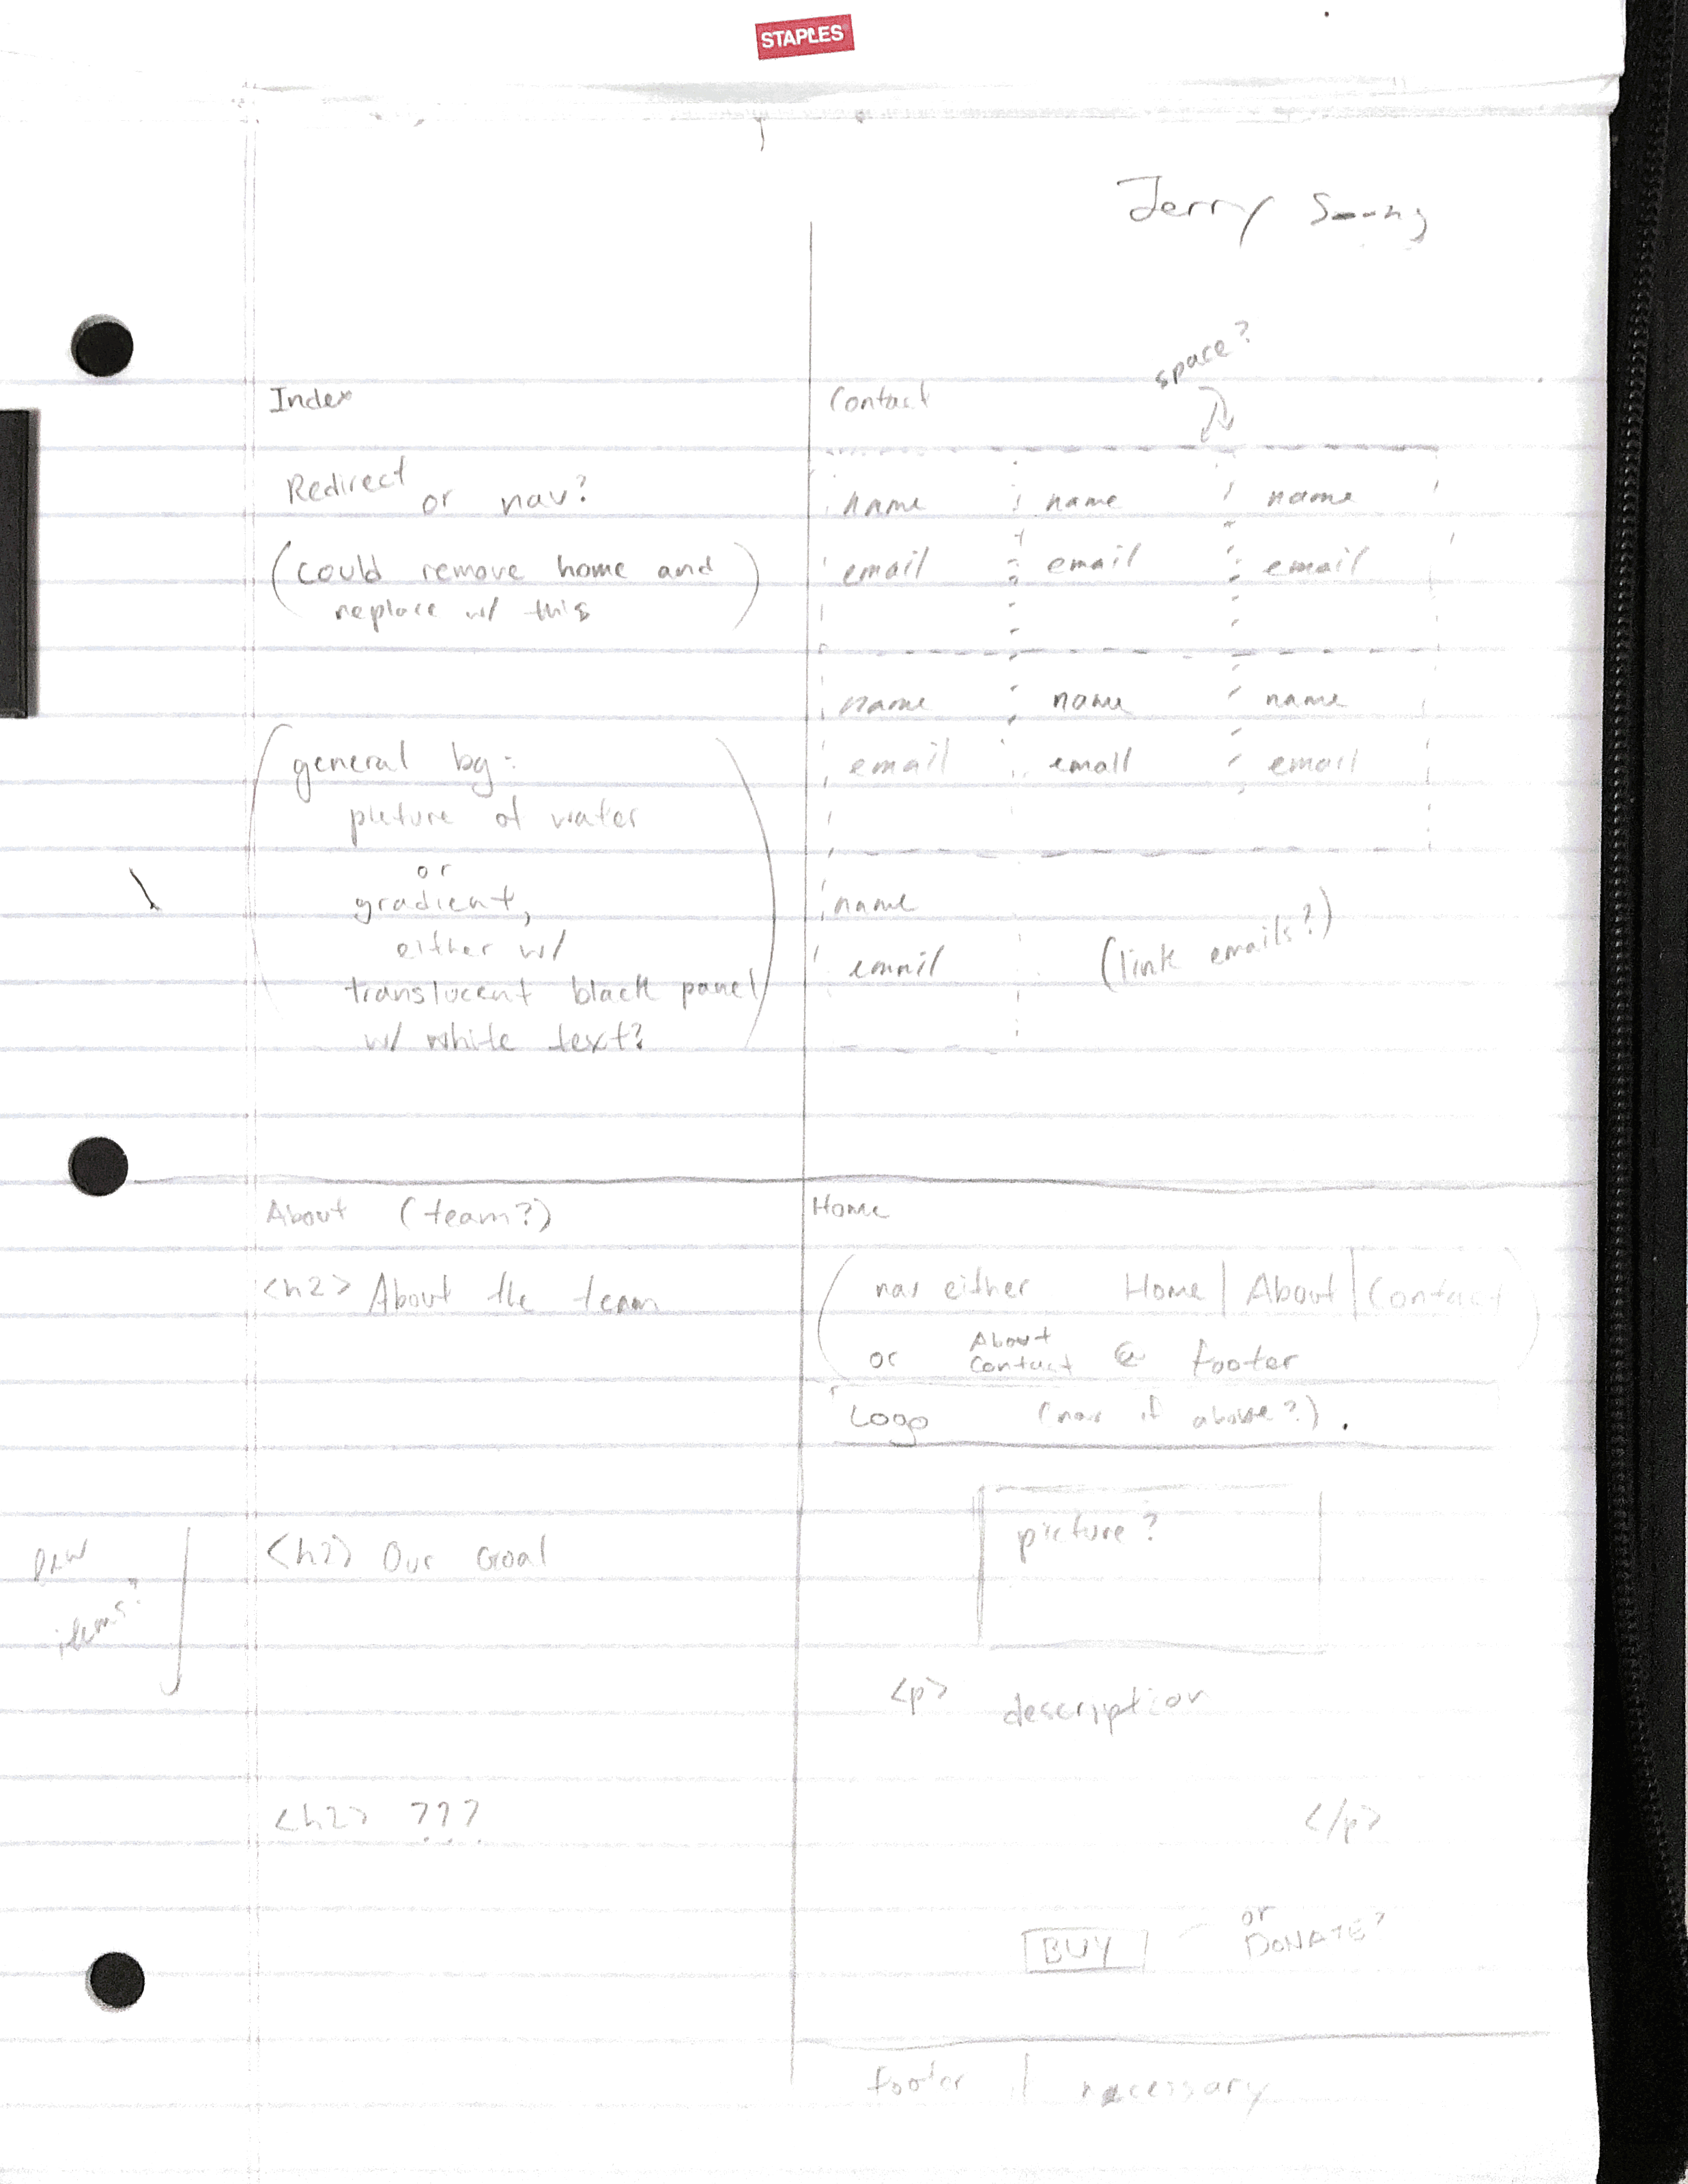 STAPLES
Jerry
Index
Redirect or nav?
(could remove home and
replace w/ this)
(general bg:
picture of water
or
gradient,
either w/
translucent black panel
w/ white text?)
Contact
space?
name name name
email email email
name name name
email email email
name
email
(link emails?)
About (team?)
<h2> About the team
<h2> Our Goal
items?
<h2> ???
Home
(nav either Home | About | Contact
or About
Contact @ footer)
Logo (nav if above?).
picture?
<p> description
</p>
BUY
or
DONATE?
footer if necessary